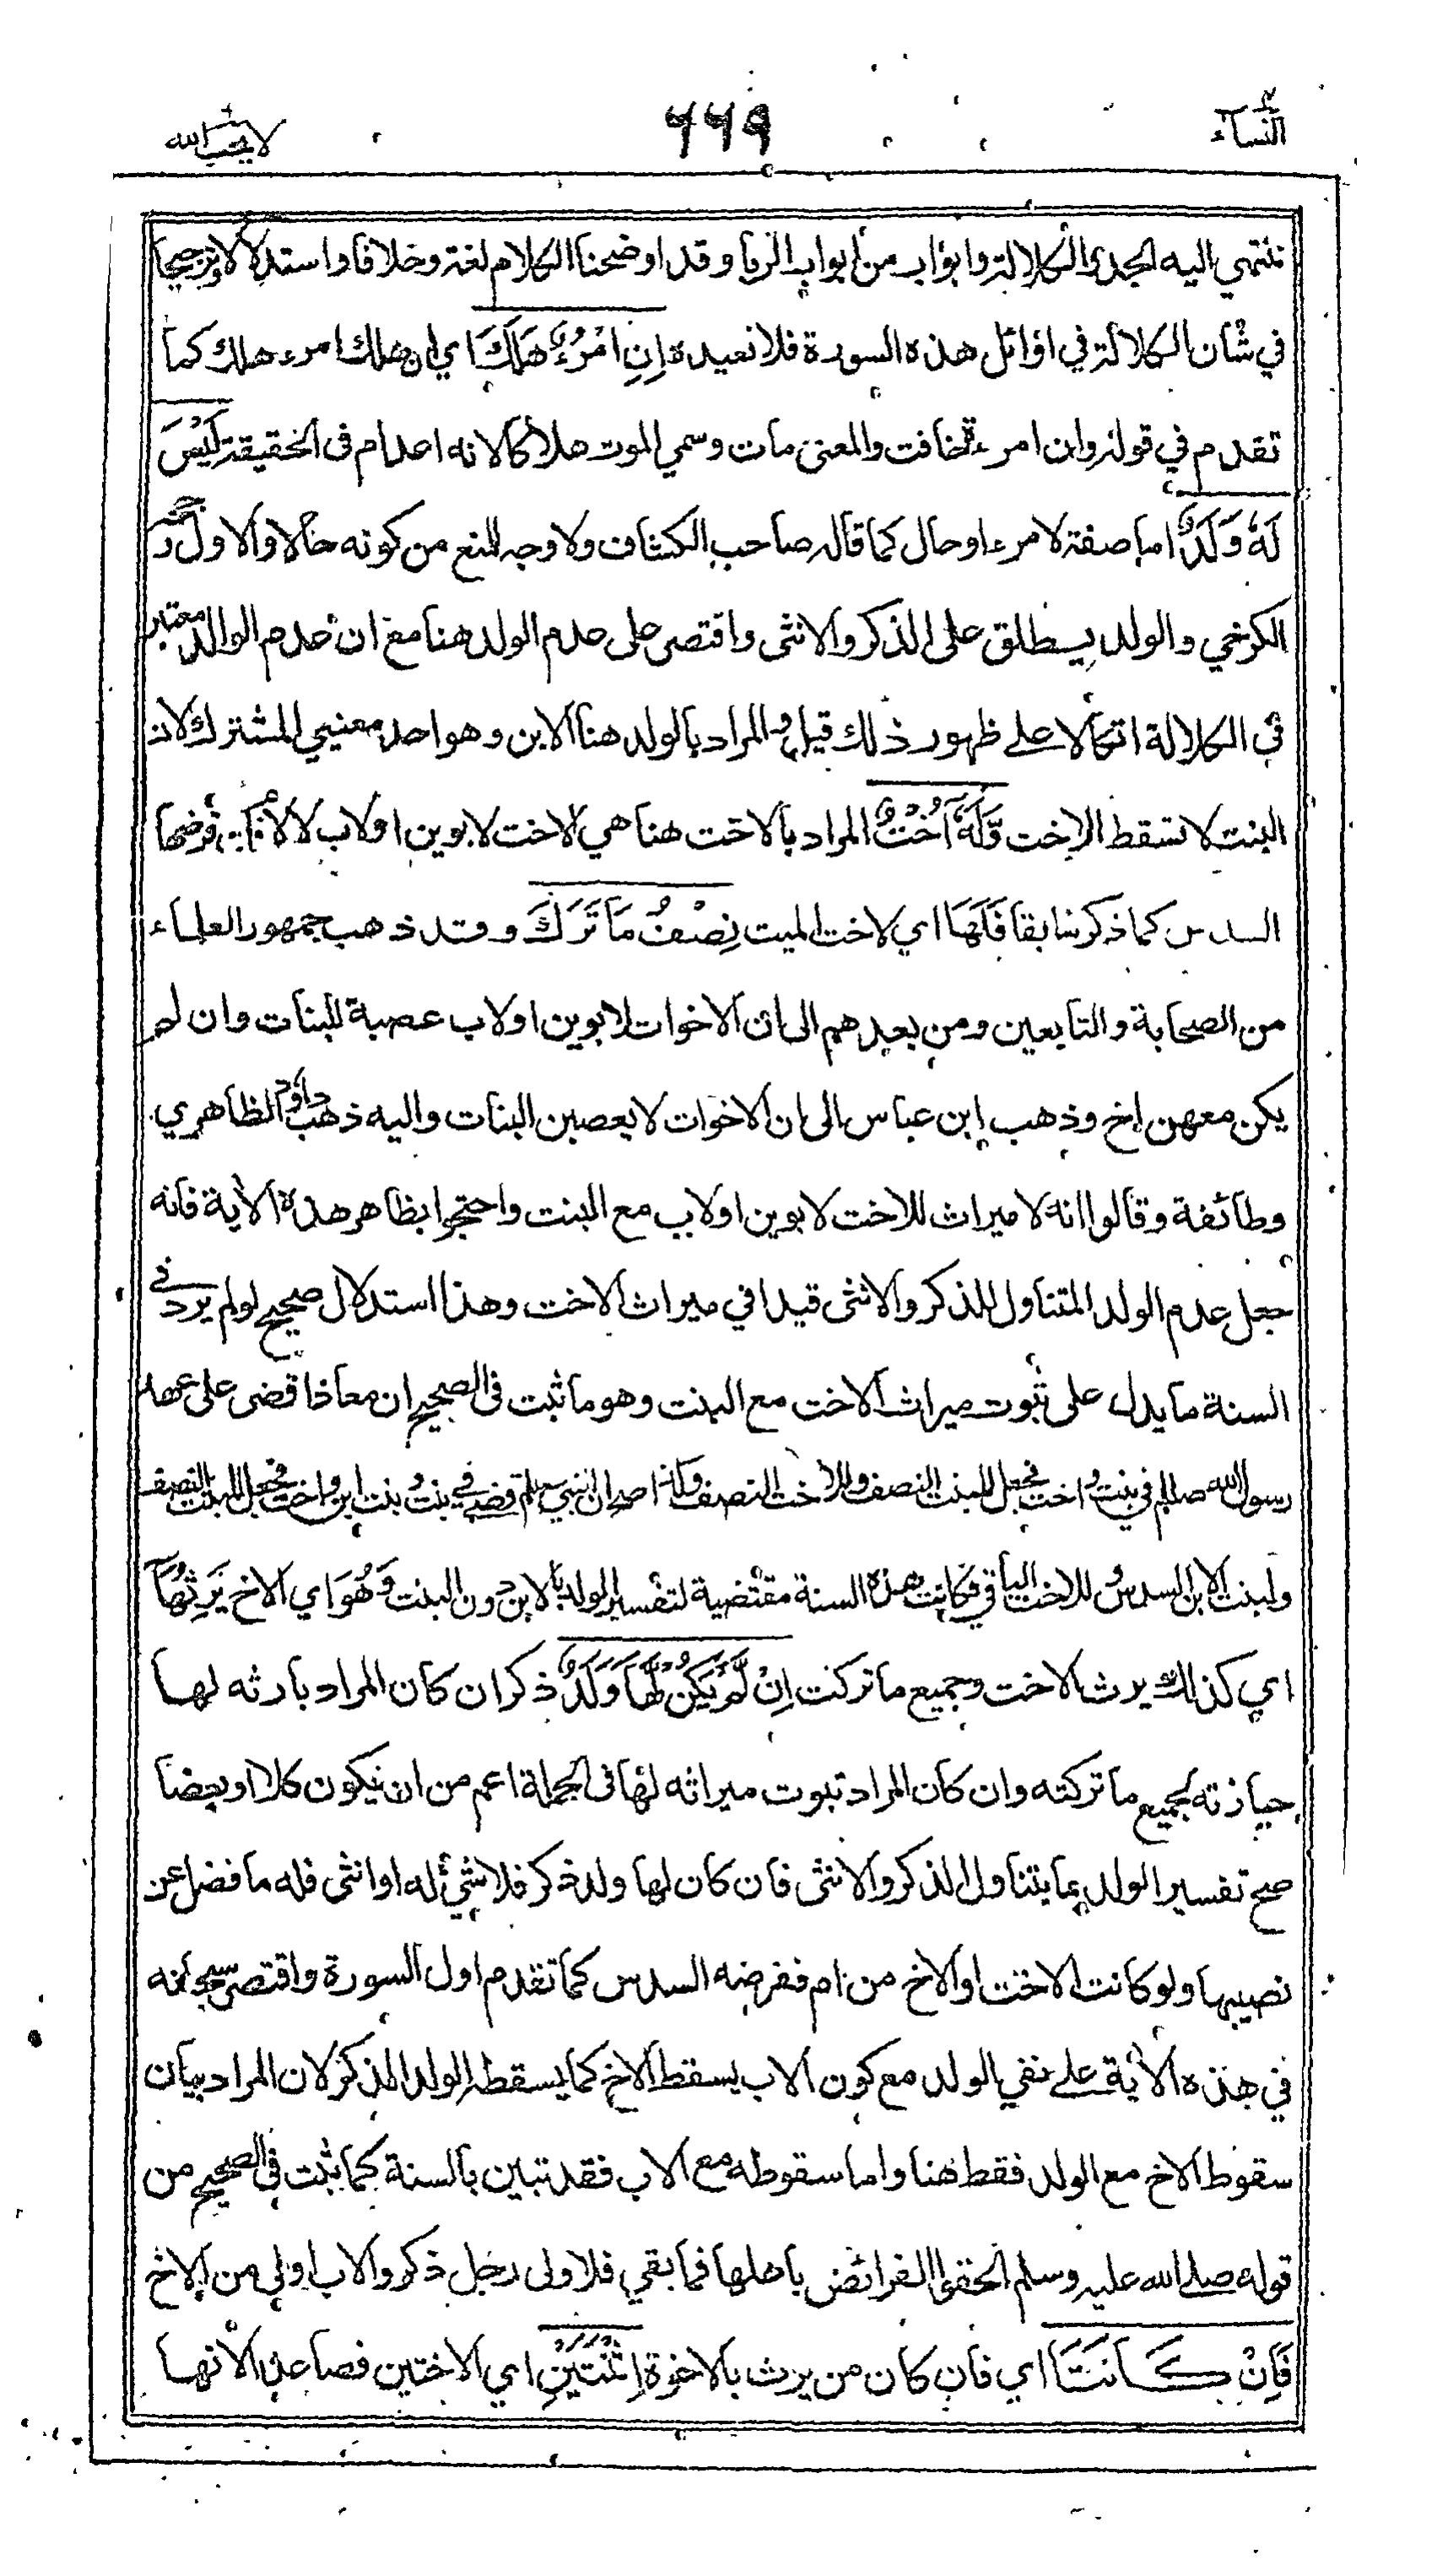 النساء
٦٦٩
لا يحب الله
ننتهي اليه الجد والكلالة وابواب من ابواب الربا وقد اوضحنا الكلام لغة وخلافا واستدلالا وترجيحا
في شان الكلالة في اوائل هذه السورة فلا نعيده اِنِ امْرُؤٌ هَلَكَ اي ان هلك امرء هلك كما
تقدم في قوله وان امرءة خافت والمعنى مات وسمي الموت هلاكا لانه اعدام في الحقيقة لَيْسَ
لَهٗ وَلَدٌ اما صفة لامرء او حال كما قاله صاحب الكشاف ولا وجه للمنع من كونه حالا والاول رجحه
الكرخي والولد يطلق على الذكر والانثى واقتصر على عدم الولد هنا مع ان عدم الوالد معتبر
في الكلالة اتكالا على ظهور ذلك قيل والمراد بالولد هنا الابن وهو احد معنيي المشترك لان
البنت لا تسقط الاخت وَّلَهٗٓ اُخْتٌ المراد بالاخت هنا هي الاخت لابوين او لاب لا لام فان فرضها
السدس كما ذكر سابقا فَلَهَا اي لاخت الميت نِصْفُ مَا تَرَكَ وقد ذهب جمهور العلماء
من الصحابة والتابعين ومن بعدهم الى ان الاخوات لابوين او لاب عصبة للبنات وان لم
يكن معهن اخ وذهب ابن عباس الى ان الاخوات لا يعصبن البنات واليه ذهب داؤد الظاهري
وطائفة وقالوا انه لا ميراث للاخت لابوين او لاب مع البنت واحتجوا بظاهر هذه الاية فانه
جعل عدم الولد المتناول للذكر والانثى قيدا في ميراث الاخت وهذا استدلال صحيح لو لم يرد في
السنة ما يدل على ثبوت ميراث الاخت مع البنت وهو ما ثبت في الصحيح ان معاذا قضى على عهد
رسول الله صللم في بنت واخت فجعل للبنت النصف وللاخت النصف وكذا صح ان النبي صللم قضى في بنت وبنت ابن واخت فجعل للبنت النصف
ولبنت الابن السدس وللاخت الباقي فكانت هذه السنة مقتضية لتفسير الولد بالابن دون البنت وَهُوَ اي الاخ يَرِثُهَآ
اي كذلك يرث الاخت وجميع ما تركت اِنْ لَّمْ يَكُنْ لَّهَا وَلَدٌ ذكر ان كان المراد بارثه لها
حيازته لجميع ما تركته وان كان المراد ثبوت ميراثه لها في الجملة اعم من ان يكون كلا او بعضا
صح تفسير الولد بما يتناول الذكر والانثى فان كان لها ولد ذكر فلا شيء له او انثى فله ما فضل عن
نصيبها ولو كانت الاخت او الاخ من ام ففرضه السدس كما تقدم اول السورة واقتصر سبحانه
في هذه الاية على نفي الولد مع كون الاب يسقط الاخ كما يسقطه الولد الذكر لان المراد بيان
سقوط الاخ مع الولد فقط هنا واما سقوطه مع الاب فقد تبين بالسنة كما ثبت في الصحيح من
قوله صلى الله عليه وسلم الحقوا الفرائض باهلها فما بقي فلاولى رجل ذكر والاب اولى من الاخ
فَاِنْ كَانَتَا اي فان كان من يرث بالاخوة اثْنَتَيْنِ اي الاختين فصاعدا لانها